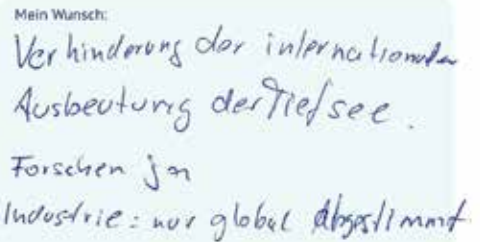 Mein Wunsch:
Verhinderung der internationalen
Ausbeutung der Tiefsee.
Forschen ja
Industrie: nur global Abgestimmt